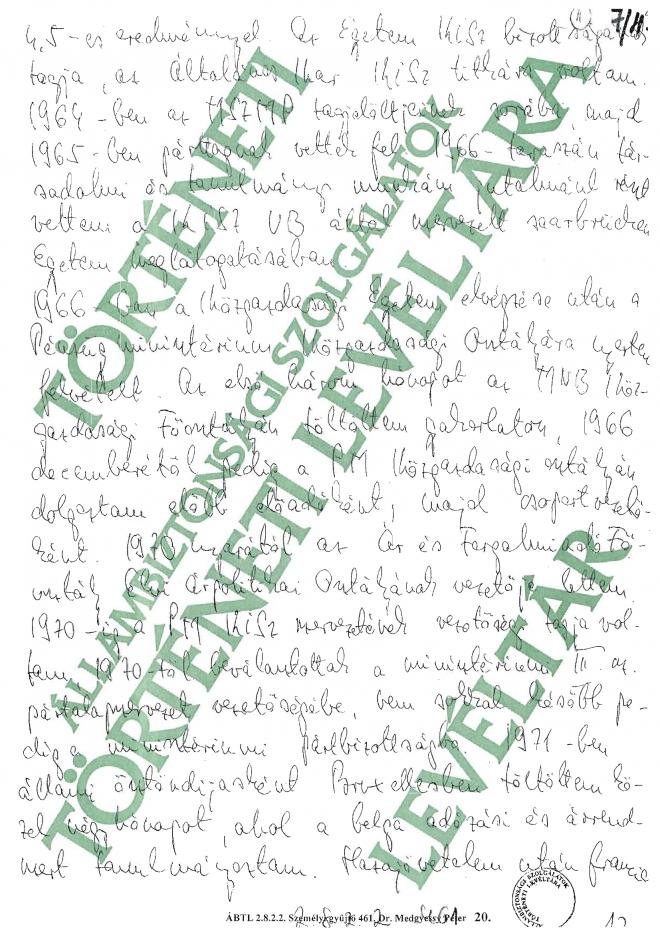 7/11.
4,5-es eredménnyel. Az Egyetem KISz bizottságának
tagja, az Általános Kar KISz titkára voltam.
1964-ben az MSZMP tagjelöltjeinek sorába, majd
1965-ben párttagnak vettek fel. 1966 tavaszán tár-
sadalmi és tanulmányi munkám jutalmául részt
vettem a KISZ VB által szervezett saarbrückeni
Egyetem meglátogatásában.
1966-ban a Közgazdasági Egyetem elvégzése után a
Pénzügyminisztérium Közgazdasági Osztályára nyertem
felvételt. Az első három hónapot az MNB Köz-
gazdasági Főosztályán töltöttem gyakorlaton, 1966
decemberétől pedig a PM Közgazdasági osztályán
dolgoztam előbb előadóként, majd csoportvezető-
ként. 1970 nyarától az Ár és Forgalmiadó Fő-
osztály Árpolitikai Osztályának vezetője lettem.
1970-ig a PM KISz szervezetének vezetőség tagja vol-
tam, 1970-től beválasztottak a minisztérium III. sz.
pártalapszervezet vezetőségébe, nem sokkal később pe-
dig a minisztériumi pártbizottságba. 1971-ben
állami ösztöndíjasként Bruxellesben töltöttem kö-
zel négy hónapot, ahol a belga adózási és árrend-
szert tanulmányoztam. Hazajövetelem után francia
TÖRTÉNETI
ÁLLAMBIZTONSÁGI SZOLGÁLATOK
TÖRTÉNETI LEVÉLTÁRA
LEVÉLTÁR
ÁBTL 2.8.2.2. Személyi gyűjtő 461. Dr. Medgyessy Péter 20.
2.8.2.2. 461
ÁLLAMBIZTONSÁGI SZOLGÁLATOK TÖRTÉNETI LEVÉLTÁRA
12